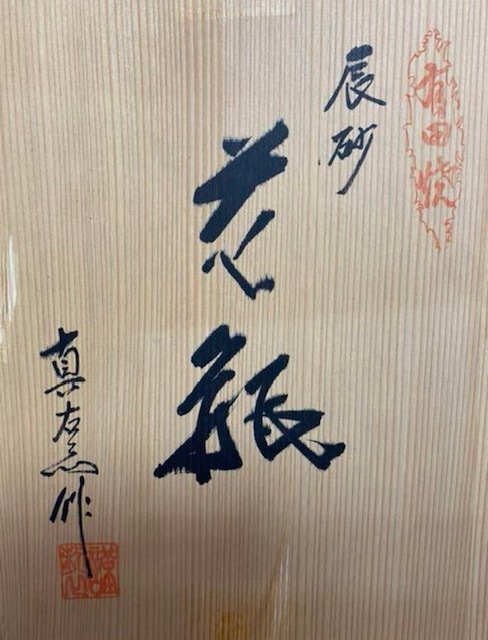 有田焼
辰砂
花瓶
真右エ門作